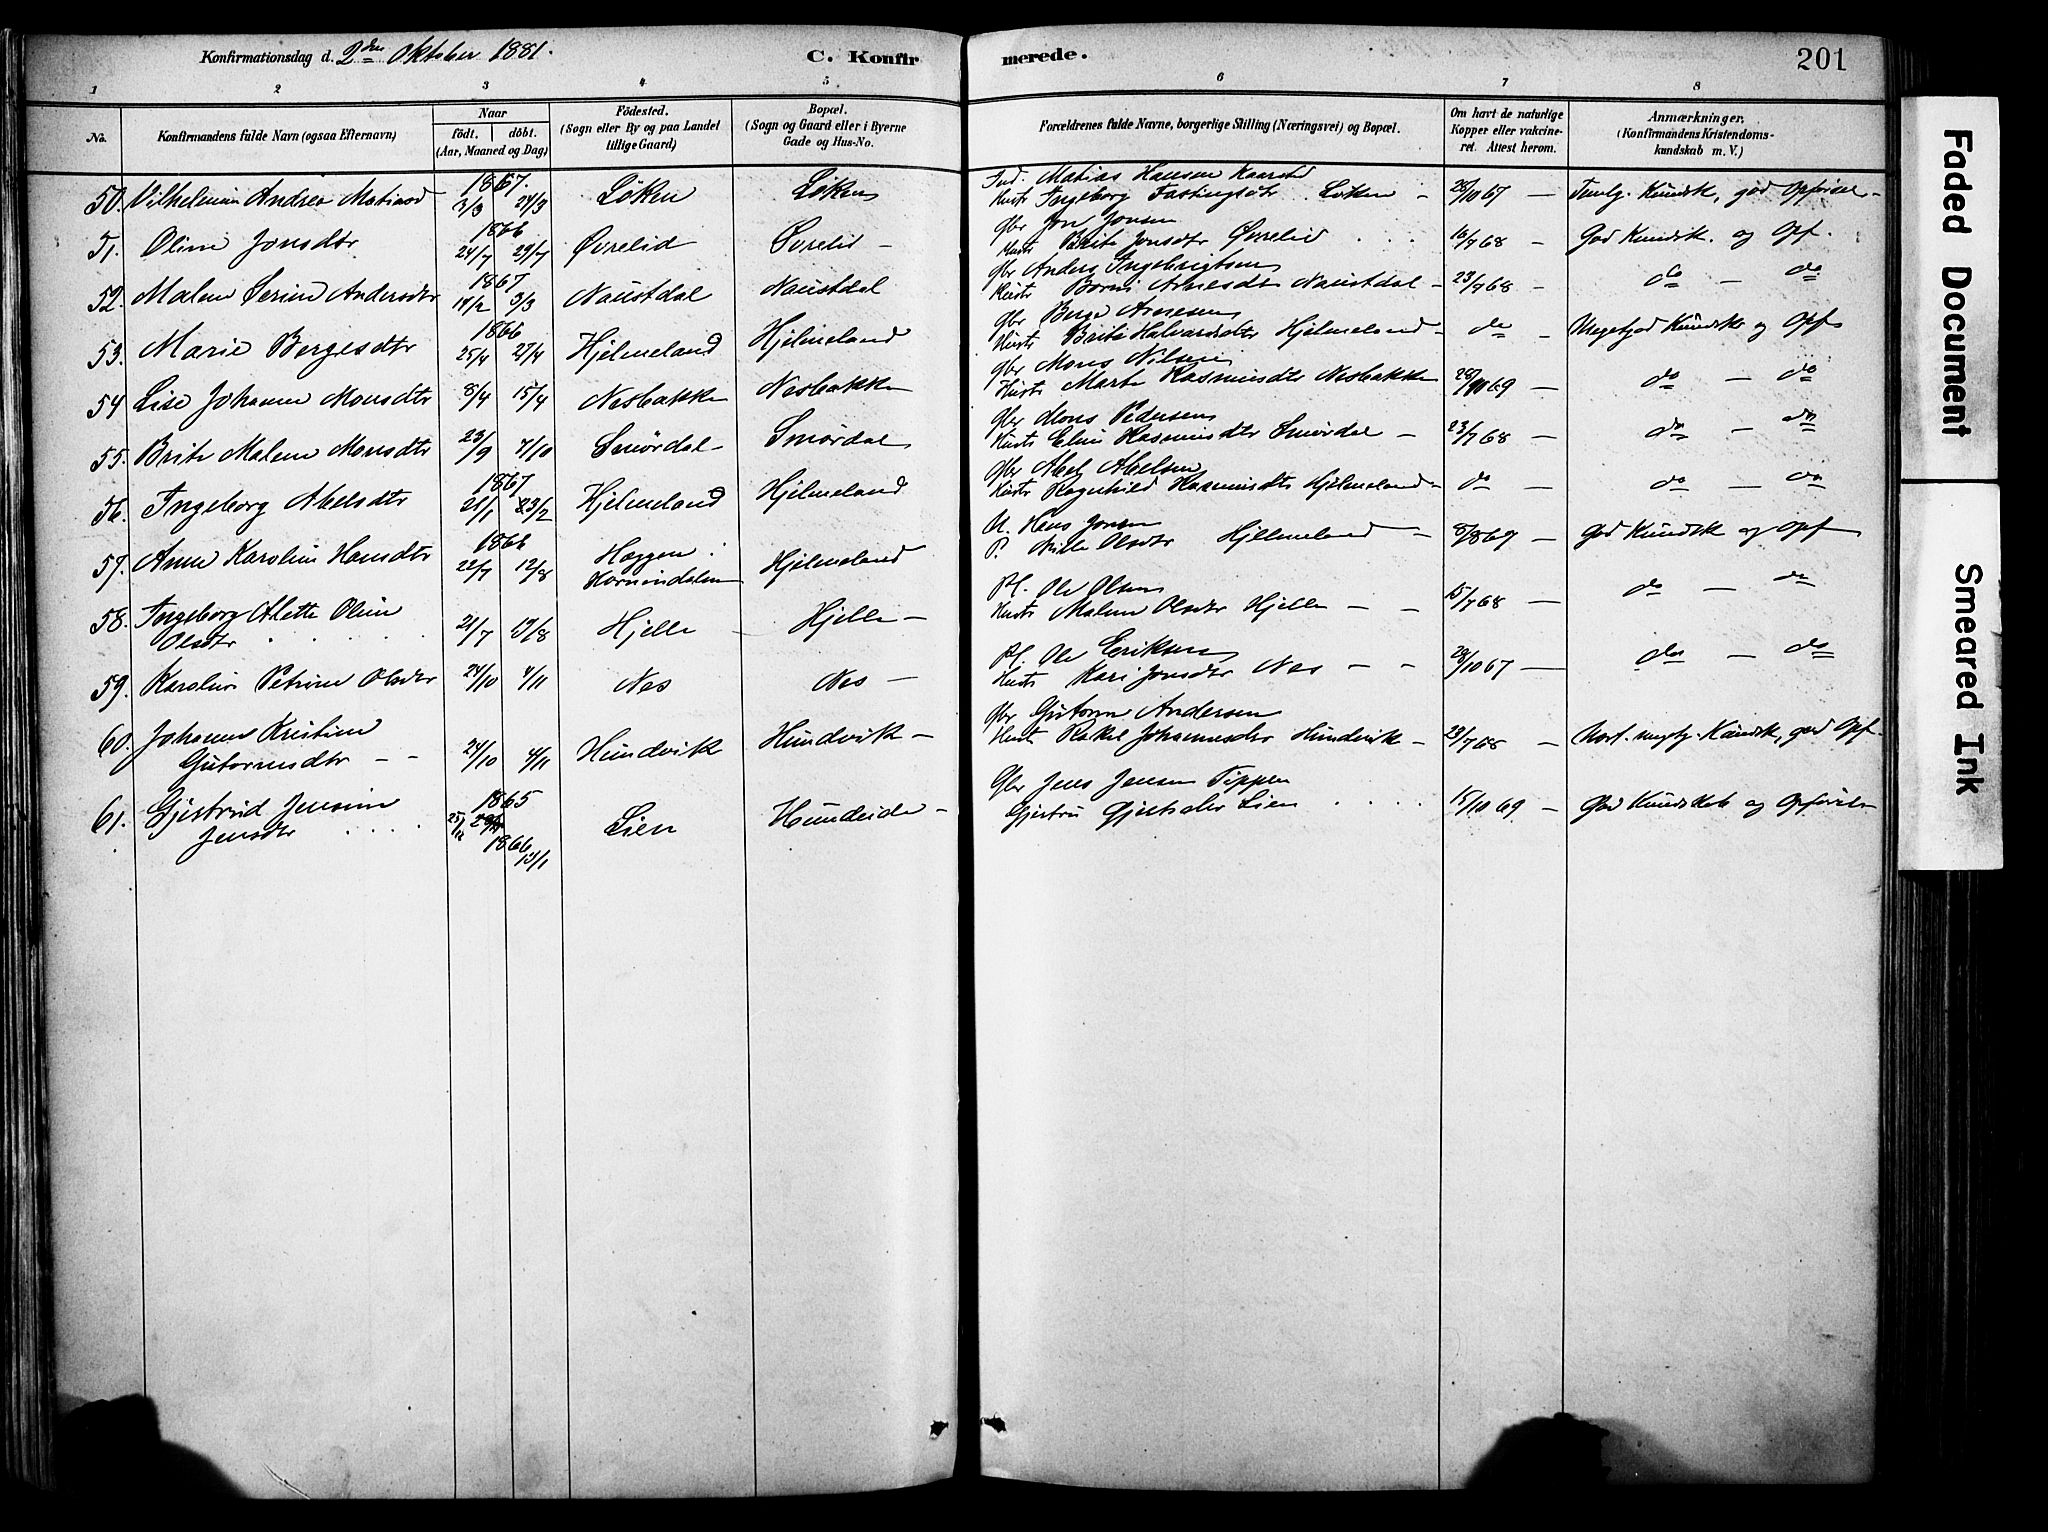 Konfirmationsdag d. 2den Oktober 1881.
C. Konfirmerede.
201
1 2 3 4 5 6 7 8
No.
Konfirmandens fulde Navn (ogsaa Efternavn)
Naar
født. døbt.
(Aar, Maaned og Dag)
Födested.
(Sogn eller By og paa Landet
tillige Gaard)
Bopæl.
(Sogn og Gaard eller i Byerne
Gade og Hus-No.
Forældrenes fulde Navne, borgerlige Stilling (Næringsvei) og Bopæl.
Om havt de naturlige
Kopper eller vakcine-
ret. Attest herom.
Anmærkninger.
(Konfirmandens Kristendoms-
kundskab m. V.)
1867.
Ind. Matias Hansen Kaarstad
50. Vilhelmine Andrea Matiasd 3/3 24/3 Löken Löken Hust. Ingeborg Fastingsdtr Löken – 28/10 67 – Temlg. Kundsk, god Opförsel –
1866
Gbr Jon Jonsen
51. Oline Jonsdtr 24/7 29/7 Øvrelid Øvrelid – Hust. Brite Jonsdtr Øvrelid 16/7 68 – God Kundsk. og Opf.
1867
Gbr Anders Ingebrigtsen
52. Malene Serine Andersdtr 14/2 3/3 Naustdal Naustdal Hust. Borni Arnesdtr Naustdal – 23/7 68 – do – do
1866
Gbr Berge Arnesen
53. Marie Bergesdtr 25/4 27/4 Hjelmeland Hjelmeland Hust. Brite Halvardsdtr Hjelmeland – do – Megetgod Kundsk og Opf
Gbr Mons Nilsen
54 Lise Johanne Monsdtr 8/4 15/4 Nesbakke Nesbakke Hust. Marte Rasmusdtr Nesbakke 28/10 69 – do – do
Gbr Mons Pedersen
55. Brite Malene Monsdtr 23/9 7/10 Smördal – Smördal Hust Eline Rasmusdtr Smördal – 23/7 68 – do – do
1867
Gbr Abel Abelsen
56. Ingeborg Abelsdtr 21/1 23/2 Hjelmeland Hjelmeland Hust. Ragnhild Rasmusdtr Hjelmeland – do – do – do
1866
U. Hans Jonsen
57. Anne Karoline Hansdtr 22/7 12/8 Haggen i Hjelmeland P. Nille Olsdtr Hjelmeland – 8/8 69 – God Kundsk og Opf
Hornindalen
Pl. Ole Olsen
58. Ingeborg Alette Oline 21/7 13/8 Hjelle – Hjelle – Hust. Malene Olsdtr Hjelle – – 15/7 68 – do – do
Olsdtr
Pl. Ole Eriksen
59. Karoline Petrine Olsdtr 24/10 4/11 Nes Nes – Hust. Kari Jonsdtr Nes – – 28/10 67 – do – do
Gbr Gutorm Andersen
60. Johanne Kristine 24/10 4/11 Hundvik Hundvik – Hust Rakel Johannesdtr Hundvik – 23/7 68 – Nost. megtg. Kundsk, god Opf.
Gutormsdtr – –
1865
Gbr Jens Jensen Tippen
61. Gjertrud Jensine 25/12 Lien Hundeide – Gjertru Gjertsdtr Lien 15/10 69 – God Kundskab og Opförsel
Jensdtr
1866
13/1
Faded Document
Smeared Ink